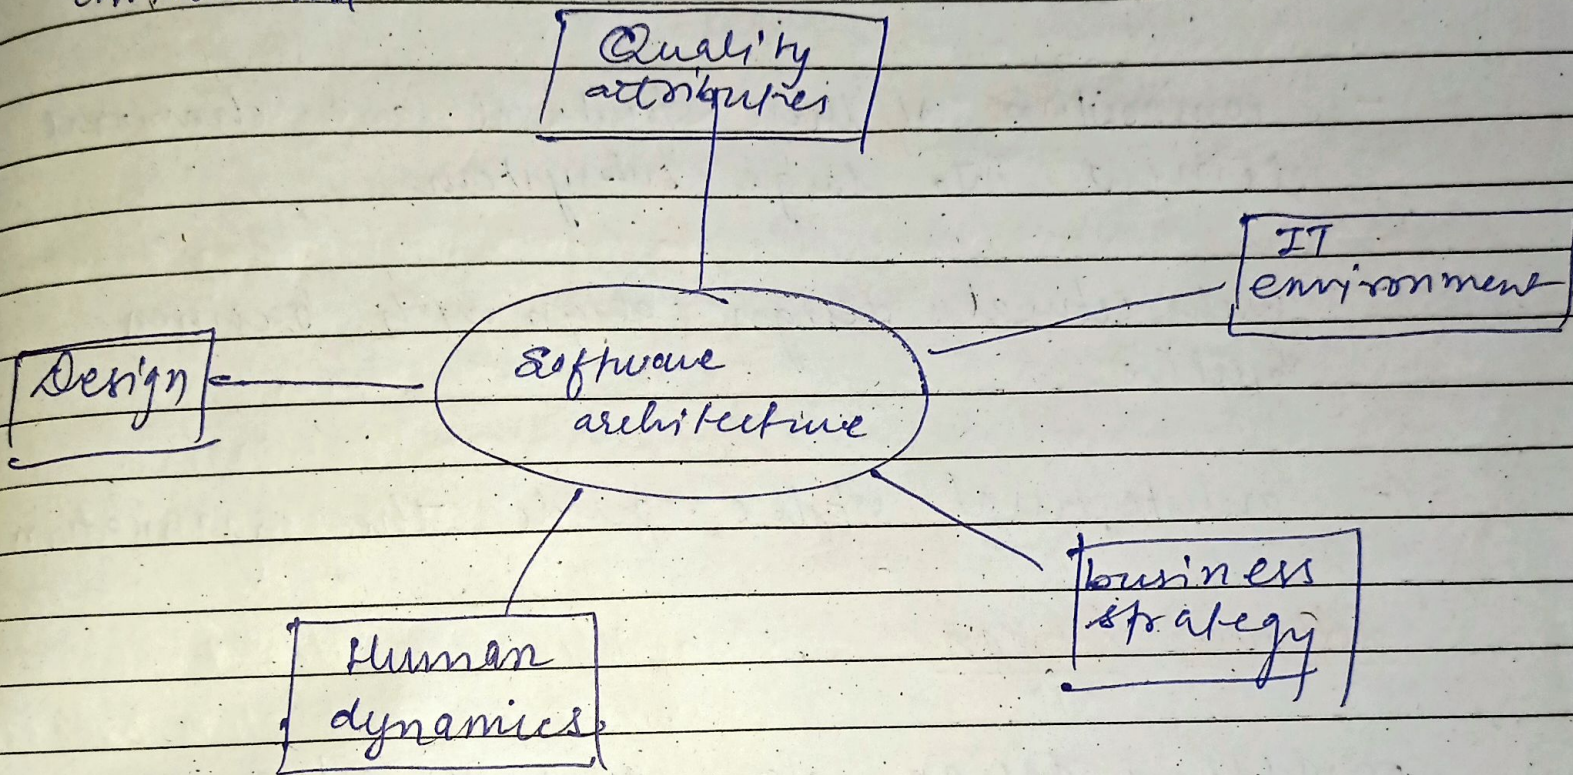 Quality
attributes
IT
environment
Design
Software
architecture
business
strategy
Human
dynamics